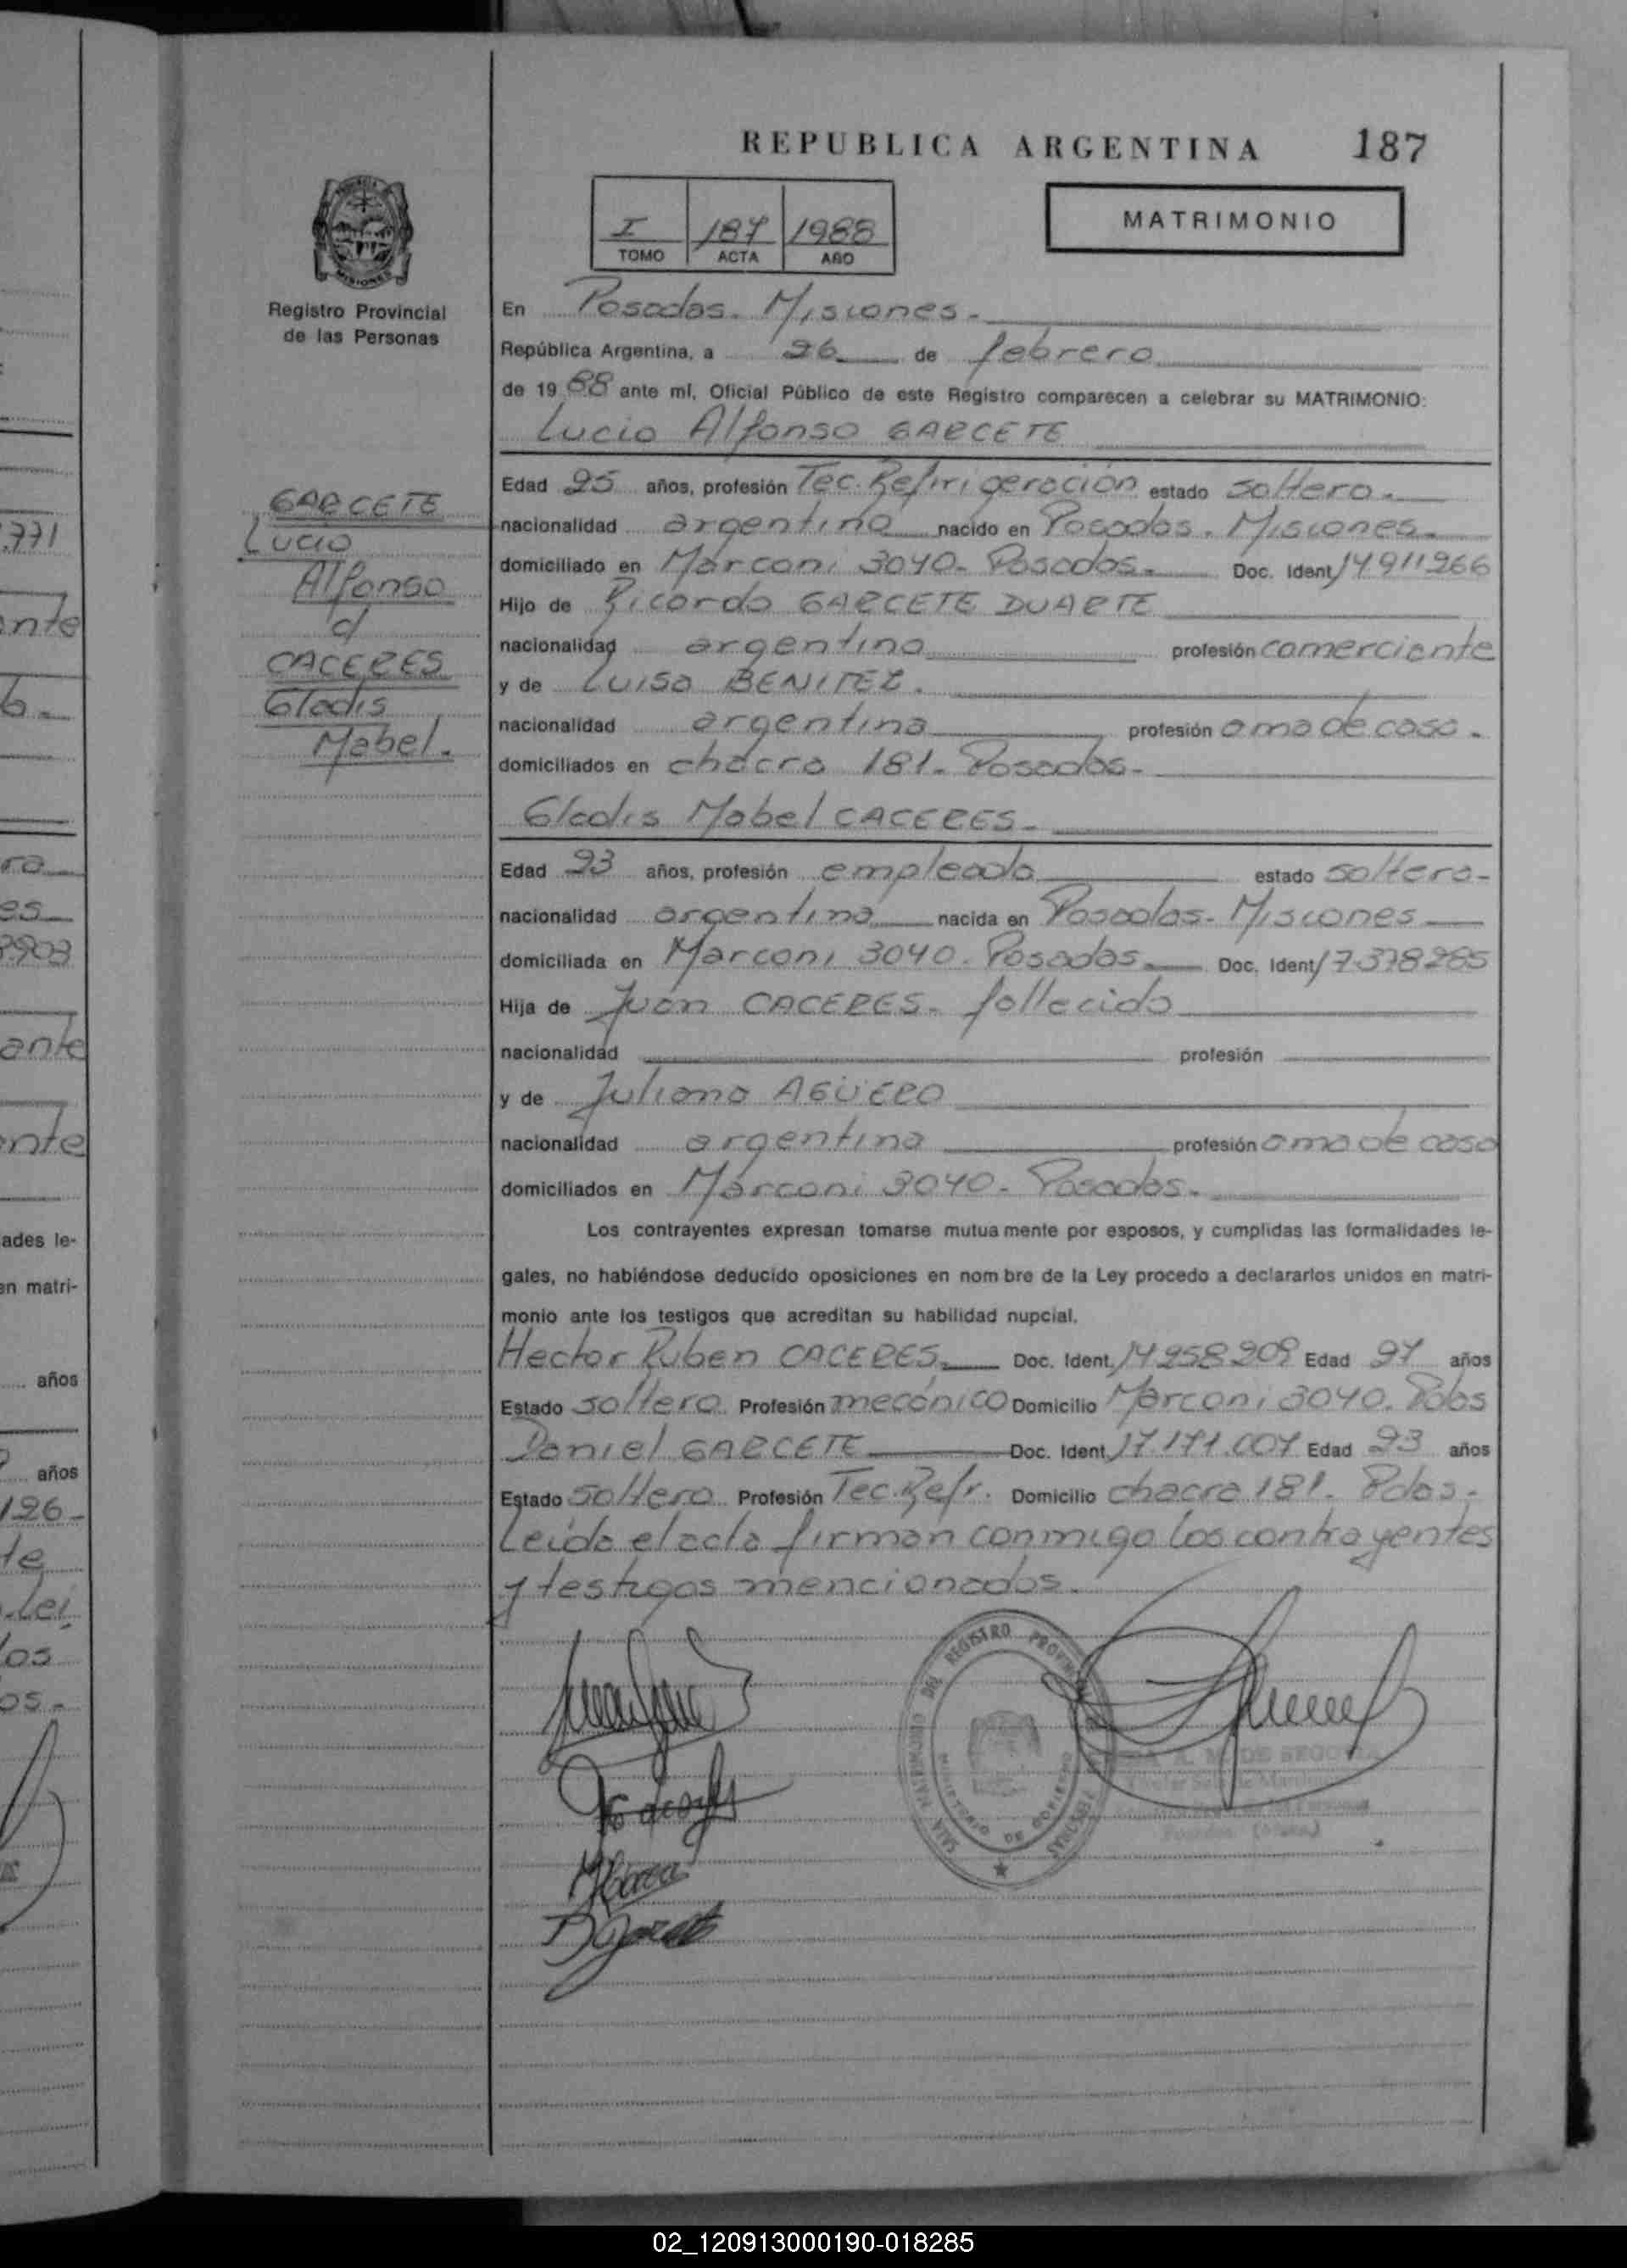 REPUBLICA ARGENTINA 187
MATRIMONIO
I 187 1988
TOMO ACTA AÑO
MISIONES
Registro Provincial
de las Personas
En Posadas. Misiones.
República Argentina, a 26 de febrero
de 1988 ante mí, Oficial Público de este Registro comparecen a celebrar su MATRIMONIO:
Lucio Alfonso GARCETE
GARCETE
Lucio
Alfonso
c/
CACERES
Gladis
Mabel.
Edad 25 años, profesión Tec. Refrigeración estado soltero.
nacionalidad argentina nacido en Posadas. Misiones.
domiciliado en Marconi 3040. Posadas. Doc. Ident. 14911266
Hijo de Ricardo GARCETE DUARTE
nacionalidad argentina profesión comerciante
y de Luisa BENITEZ.
nacionalidad argentina profesión ama de casa.
domiciliados en chacra 181. Posadas.
Gladis Mabel CACERES.
Edad 23 años, profesión empleada estado soltera.
nacionalidad argentina nacida en Posadas. Misiones
domiciliada en Marconi 3040. Posadas. Doc. Ident. 17378285
Hija de Juan CACERES. fallecido
nacionalidad profesión
y de Juliana AGÜERO
nacionalidad argentina profesión ama de casa
domiciliados en Marconi 3040. Posadas.
Los contrayentes expresan tomarse mutuamente por esposos, y cumplidas las formalidades le-
gales, no habiéndose deducido oposiciones en nombre de la Ley procedo a declararlos unidos en matri-
monio ante los testigos que acreditan su habilidad nupcial.
Hector Ruben CACERES. Doc. Ident. 14258209 Edad 27 años
Estado soltero Profesión mecánico Domicilio Marconi 3040. Pdas
Daniel GARCETE Doc. Ident. 17.171.007 Edad 23 años
Estado soltero Profesión Tec. Refr. Domicilio chacra 181. Pdas.
Leída el acta firman conmigo los contrayentes
y testigos mencionados.
DEL REGISTRO
MINISTERIO DE GOBIERNO
M. DE SEGOVIA
771
ante
ro
es
ante
ante
ades le-
en matri-
años
años
126-
te
lei
los
os.
02_120913000190-018285